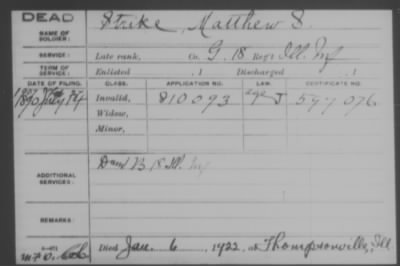 DEAD
NAME OF SOLDIER: Strike, Matthew S.
SERVICE: Late rank, Co. G. 18 Reg't Ill. Inf
TERM OF SERVICE: Enlisted , 1 Discharged , 1
DATE OF FILING. CLASS. APPLICATION NO. LAW. CERTIFICATE NO.
1890 July Invalid, 810093 J 597076
Widow,
Minor,
ADDITIONAL SERVICES: D and B 18 Ill. Inf
REMARKS:
Died Jan. 6, 1922, at Thompsonville, Ill.